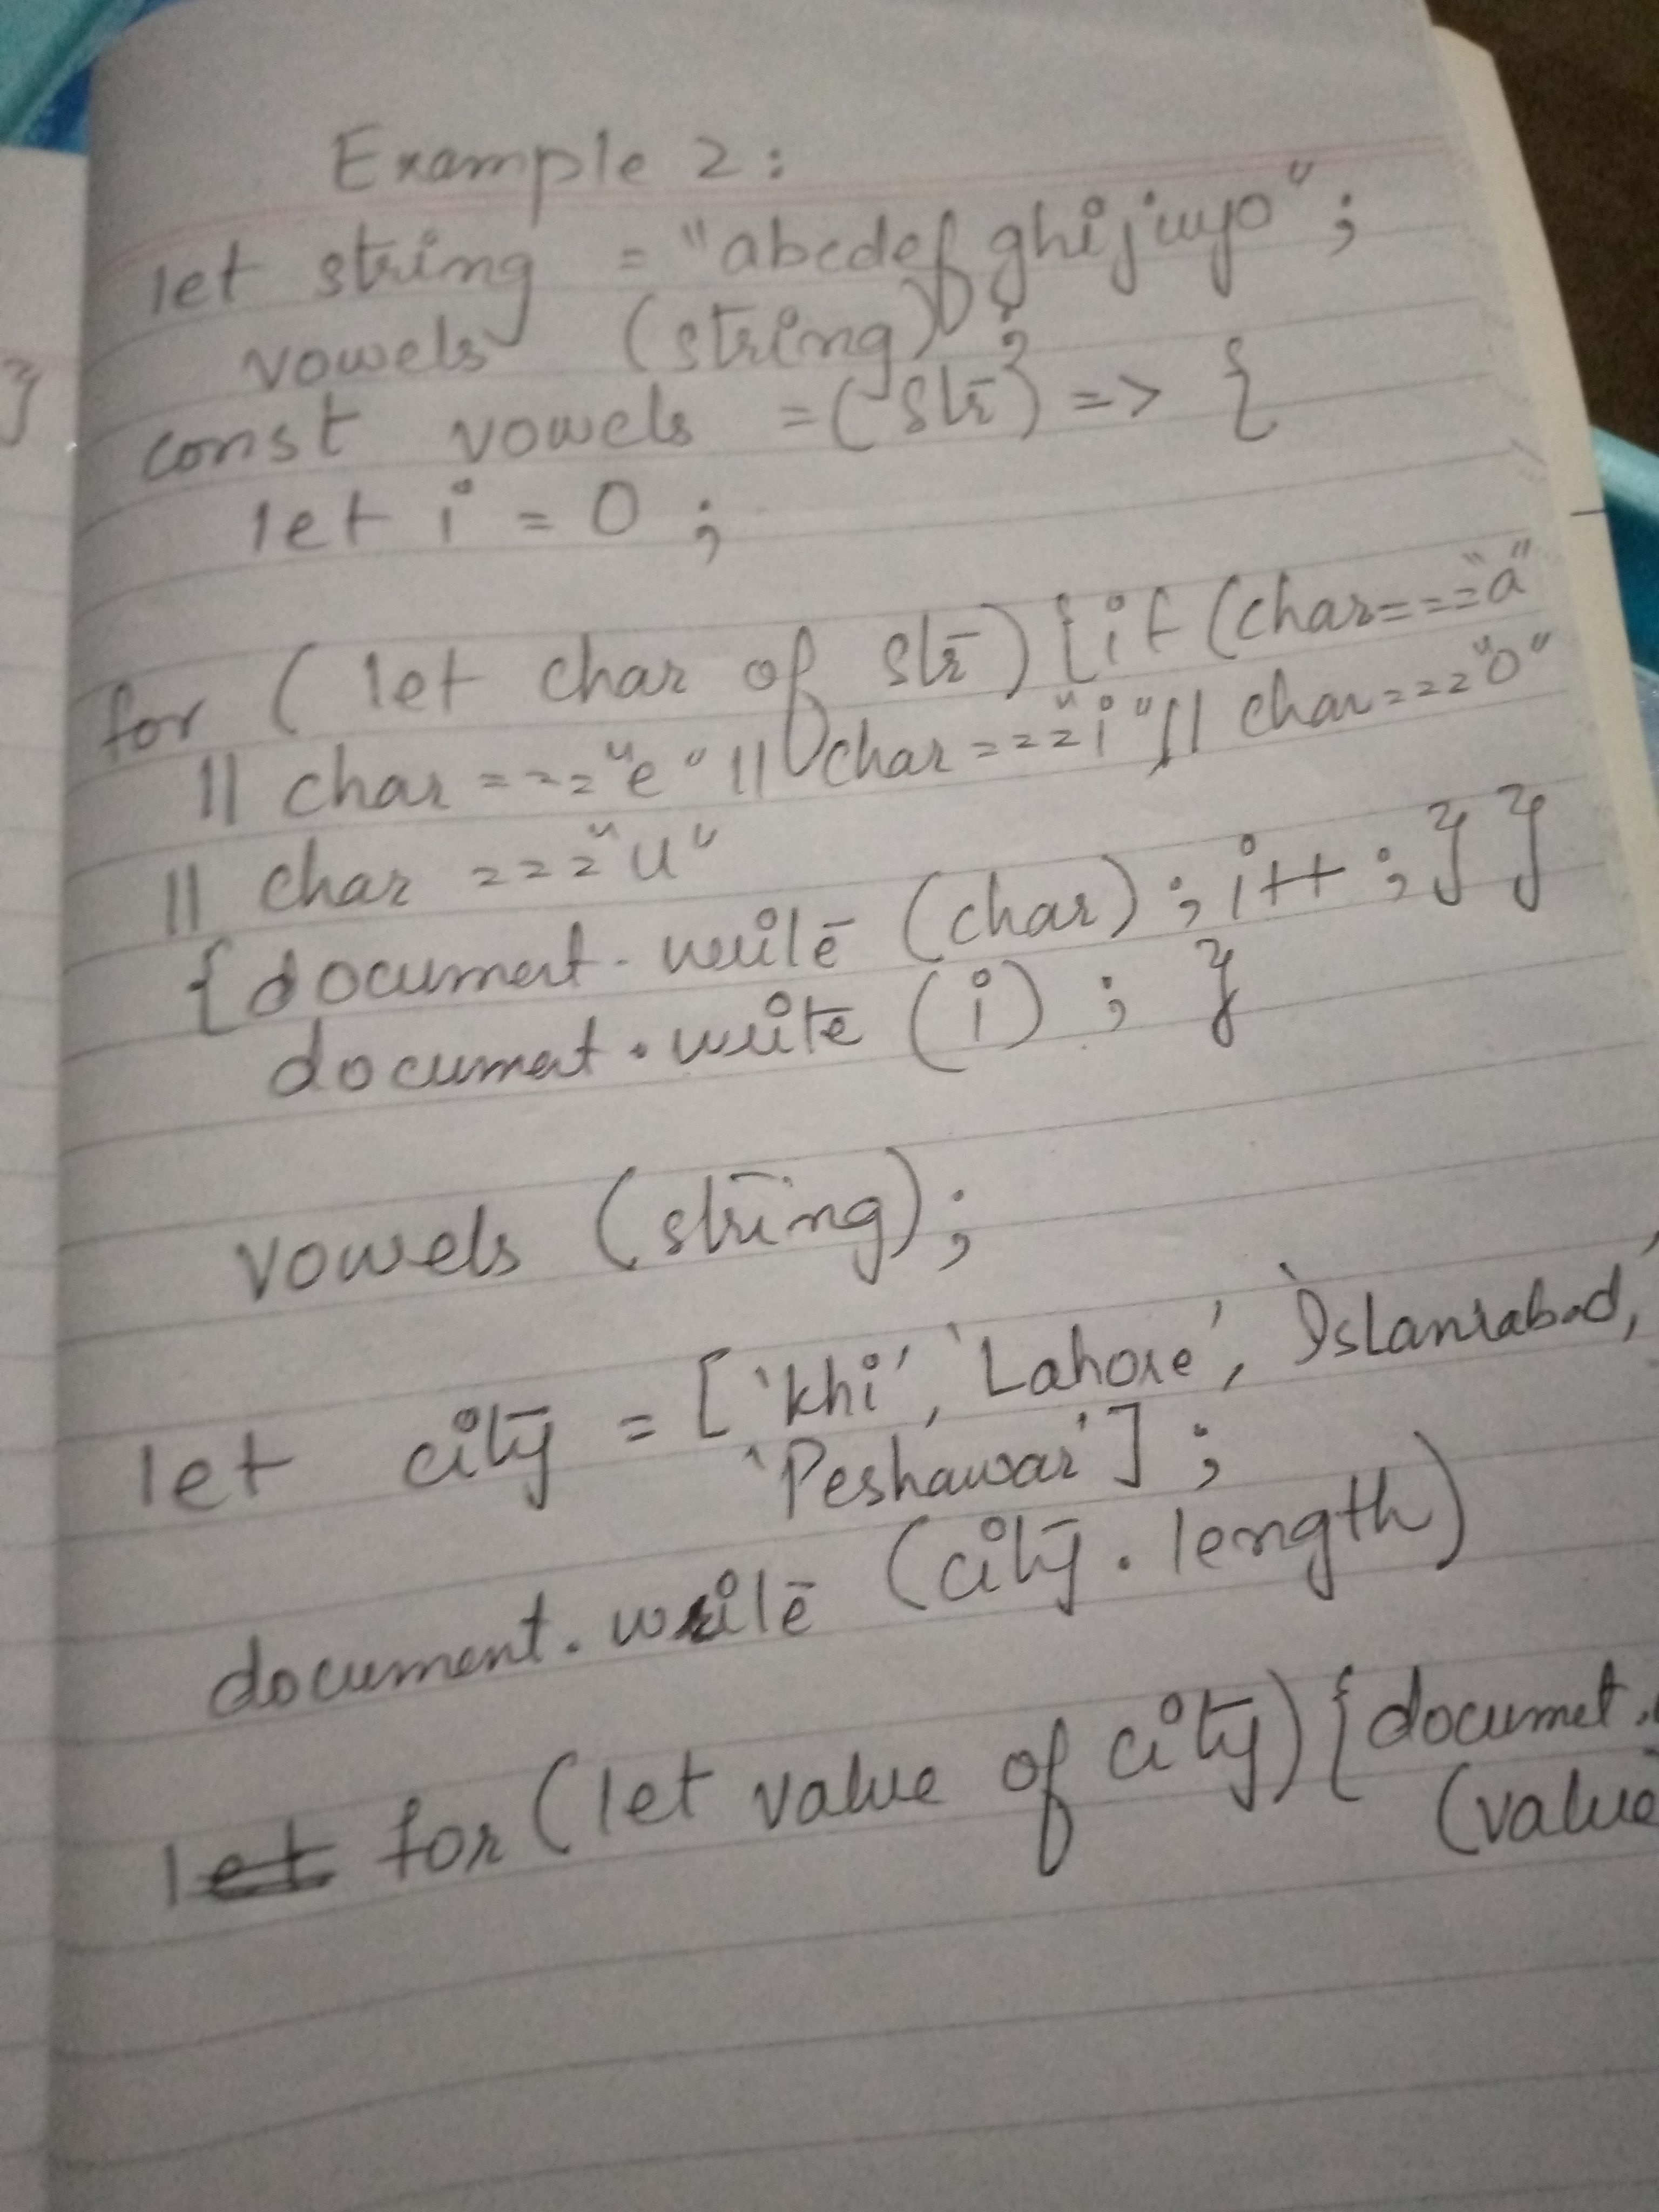 Example 2:
let string = "abcdefghijuyo";
vowels (string);
const vowels = (str) => {
let i = 0;
for ( let char of str) {if (char==="a"
|| char ==="e" || char ==="i" || char ==="o"
|| char ==="u"
{document.write (char); i++; } }
documet.write (i); }
vowels (string);
let city = ['khi', 'Lahore', 'Islamabad,'
'Peshawar'];
document.write (city.length)
let for (let value of city) {documet.
(value